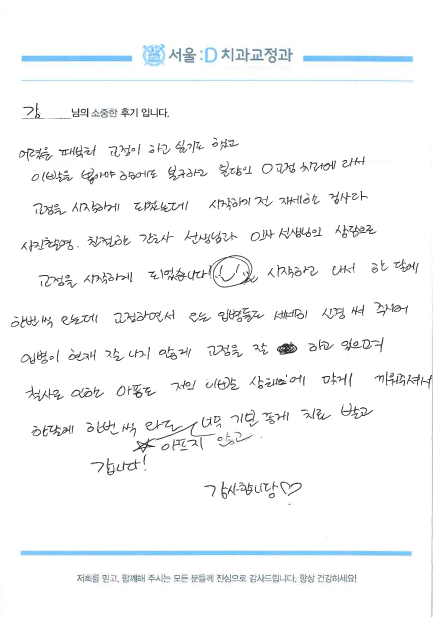 서울:D 치과교정과
강 님의 소중한 후기 입니다.
어렸을 때부터 교정이 하고 싶기도 했고
이빨을 뽑아야 함에도 불구하고 분당인 이교정 치과에 와서
교정을 시작하게 되었는데 시작하기 전 자세한 검사와
사진촬영. 친절한 간호사 선생님과 의사 선생님의 상담으로
교정을 시작하게 되었습니다! 시작하고 나서 한 달에
한번 씩 오는데 교정하면서 오는 입병들도 세세히 신경 써 주시어
입병이 현재 잘 나지 않게 교정을 잘 하고 있으며
철사로 인한 아픔도 저의 이빨 상태에 맞게 끼워주셔서
한달에 한번 씩 와도 너무 기분 좋게 치료 받고
아프지 않고
갑니다!
감사합니당♡
저희를 믿고, 함께해 주시는 모든 분들께 진심으로 감사드립니다. 항상 건강하세요!